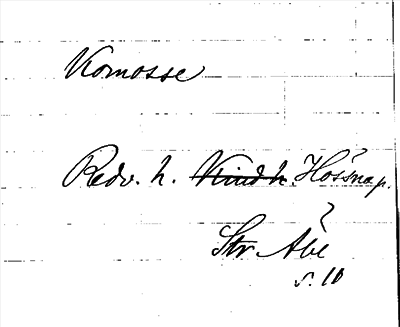 Komosse
Redv. h. Kind h. Hössnap.
Str Åke
s. 10